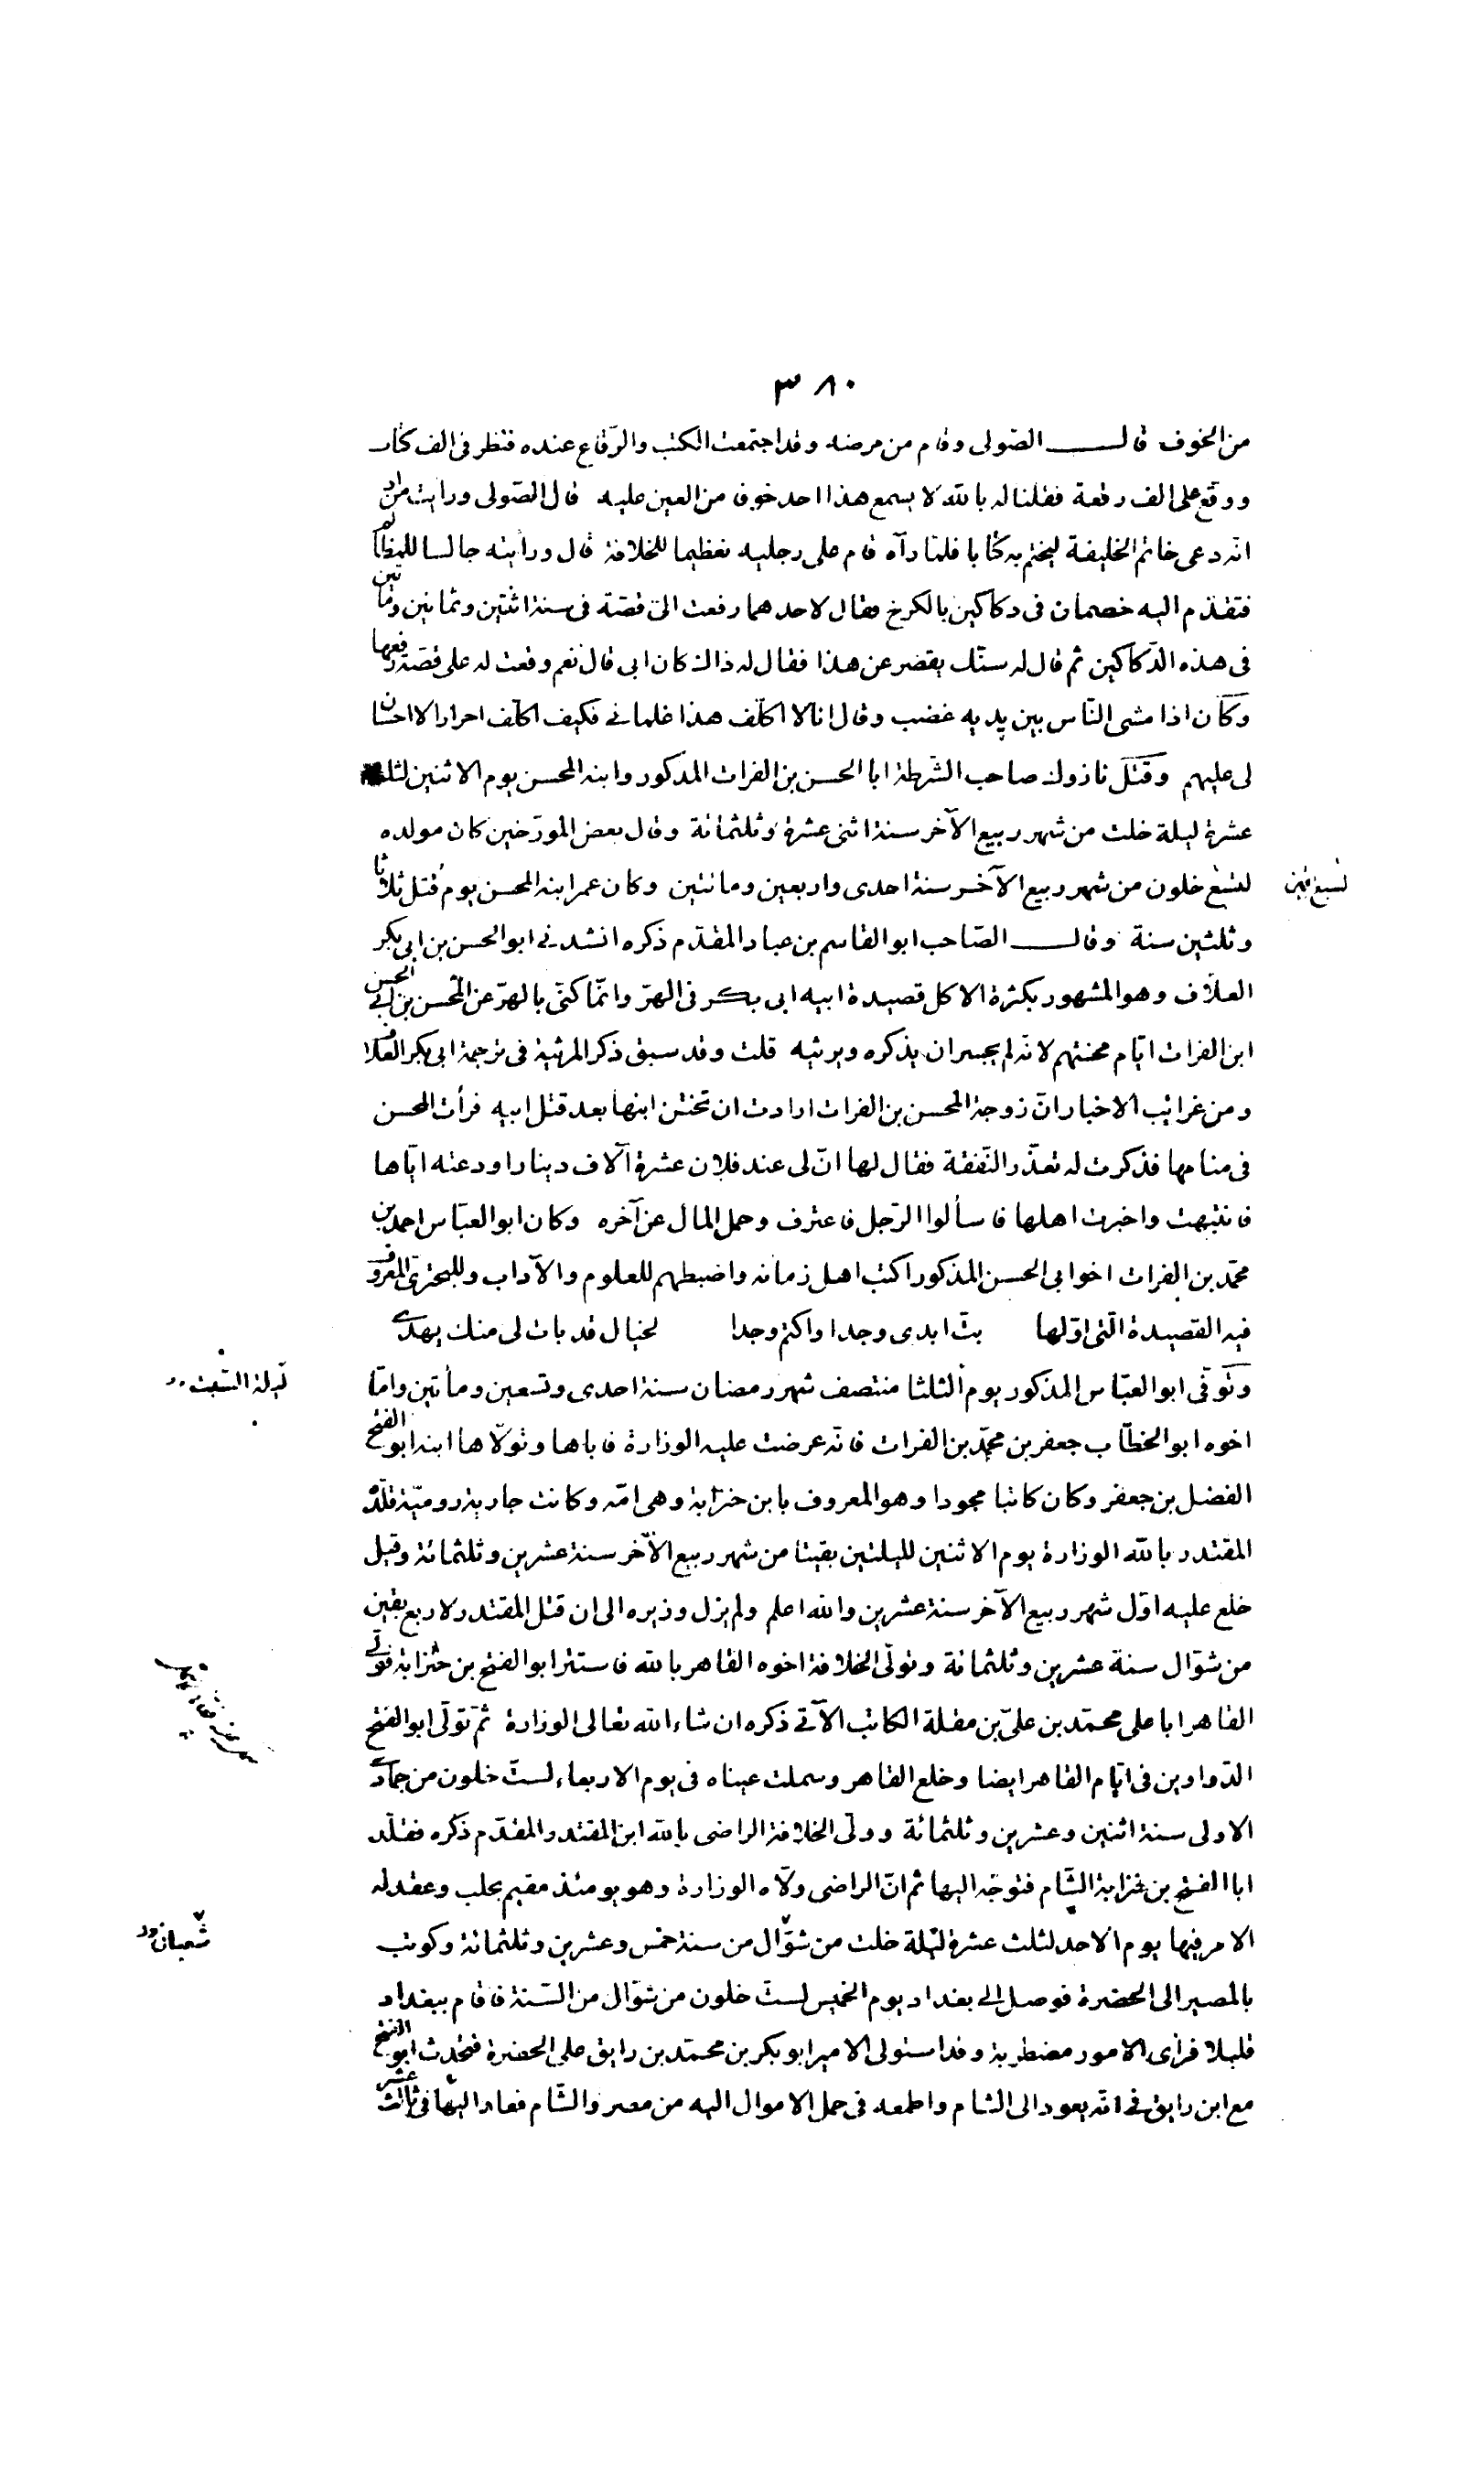 ٣٨٠
من الخوف قال الصّولى وقام من مرضه وقد اجتمعت الكتب والرّقاع عنده فنظر فى الف كتاب
ووقّع على الف رقعة فقلنا له بالله لا يسمع هذا احد خوفا من العين عليه قال الصّولى ورأيت من ادبه
انّه دعى خاتم الخليفة ليختم به كتابا فلمّا رآه قام على رجليه تعظيما للخلافة قال ورأيته جالسا للمظالم
فتقدّم اليه خصمان فى دكاكين بالكرخ فقال لاحدهما رفعت الىّ قصّة فى سنة اثنتين وثمانين ومأتين
فى هذه الدّكاكين ثم قال له سنّك يقصر عن هذا فقال له ذاك كان ابى قال نعم وقعت له على قصّة رفعها
وكان اذا مشى النّاس بين يديه غضب وقال انا لا اكلّف هذا غلمانى فكيف اكلّف احرارا لا احسان
لى عليهم وقتل نازوك صاحب الشّرطة ابا الحسن بن الفرات المذكور وابنه المحسن يوم الاثنين لثلث
عشرة ليلة خلت من شهر ربيع الآخر سنة اثنى عشرة وثلثمائة وقال بعض المورّخين كان مولده
لتسع خلون من شهر ربيع الآخر سنة احدى واربعين ومائتين وكان عمر ابنه المحسن يوم قُتل ثلاثا
لسبع بقين
وثلثين سنة وقال الصّاحب ابو القاسم بن عباد المقدّم ذكره انشدنى ابو الحسن بن ابى بكر
العلّاف وهو المشهور بكثرة الاكل قصيدة ابيه ابى بكر فى الهرّ وانّما كنّى بالهرّ عن المحسن بن ابى الحسن
ابن الفرات ايّام محنتهم لانّه لم يجسر ان يذكره ويرثيه قلت وقد سبق ذكر المرثية فى ترجمة ابى بكر العلّاف
ومن غرائب الاخبار انّ زوجة المحسن بن الفرات ارادت ان تختن ابنها بعد قتل ابيه فرأت المحسن
فى منامها فذكرت له تعذّر النّفقة فقال لها انّ لى عند فلان عشرة آلاف دينار اودعته ايّاها
فانتبهت واخبرت اهلها فاسألوا الرّجل فاعترف وحمل المال عن آخره وكان ابو العبّاس احمد بن
محمّد بن الفرات اخو ابى الحسن المذكور اكتب اهل زمانه واضبطهم للعلوم والآداب وللبحترىّ المعروف
فيه القصيدة الّتى اوّلها بتّ ابدى وجدا واكتم وجدا لخيال قد بات لى منك يهدى
وتوفّى ابو العبّاس المذكور يوم الثلثا منتصف شهر رمضان سنة احدى وتسعين ومأتين وامّا
ليلة السّبت
اخوه ابو الخطّاب جعفر بن محمّد بن الفرات فانّه عرضت عليه الوزارة فاباها وتولّاها ابنه ابو الفتح
الفضل بن جعفر وكان كاتبا مجودا وهو المعروف بابن حنزابة وهى امّه وكانت جارية روميّة قلّده
المقتدر بالله الوزارة يوم الاثنين لليلتين بقيتا من شهر ربيع الآخر سنة عشرين وثلثمائة وقيل
خلع عليه اوّل شهر ربيع الآخر سنة عشرين والله اعلم ولم يزل وزيره الى ان قتل المقتدر لاربع بقين
من شوّال سنة عشرين وثلثمائة وتولّى الخلافة اخوه القاهر بالله فاستتر ابو الفتح بن حنزابة فولّى
القاهر ابا على محمّد بن علىّ بن مقلة الكاتب الآتى ذكره ان شاء الله تعالى الوزارة ثمّ تولّى ابو الفتح
الدّواوين فى ايّام القاهر ايضا وخلع القاهر وسملت عيناه فى يوم الاربعاء لستّ خلون من جمادى
الاولى سنة اثنين وعشرين وثلثمائة وولّى الخلافة الراضى بالله ابن المقتدر المقدّم ذكره فقلّد
ابا الفتح بن حنزابة الشّام فتوجّه اليها ثم انّ الراضى ولّاه الوزارة وهو يومئذ مقيم بحلب وعقد له
الامر فيها يوم الاحد لثلث عشرة ليلة خلت من شوّال من سنة خمس وعشرين وثلثمائة وكوتب
شعبان
بالمصير الى الحضرة فوصل الى بغداد يوم الخميس لستّ خلون من شوّال من السّنة فاقام ببغداد
قليلا فرأى الامور مضطربة وقد استولى الامير ابو بكر بن محمّد بن رايق على الحضرة فتحدّث ابو الفتح
مع ابن رايق فى انّه يعود الى الشام واطمعه فى حمل الاموال اليه من مصر والشّام فعاد اليها فى ثالث عشر